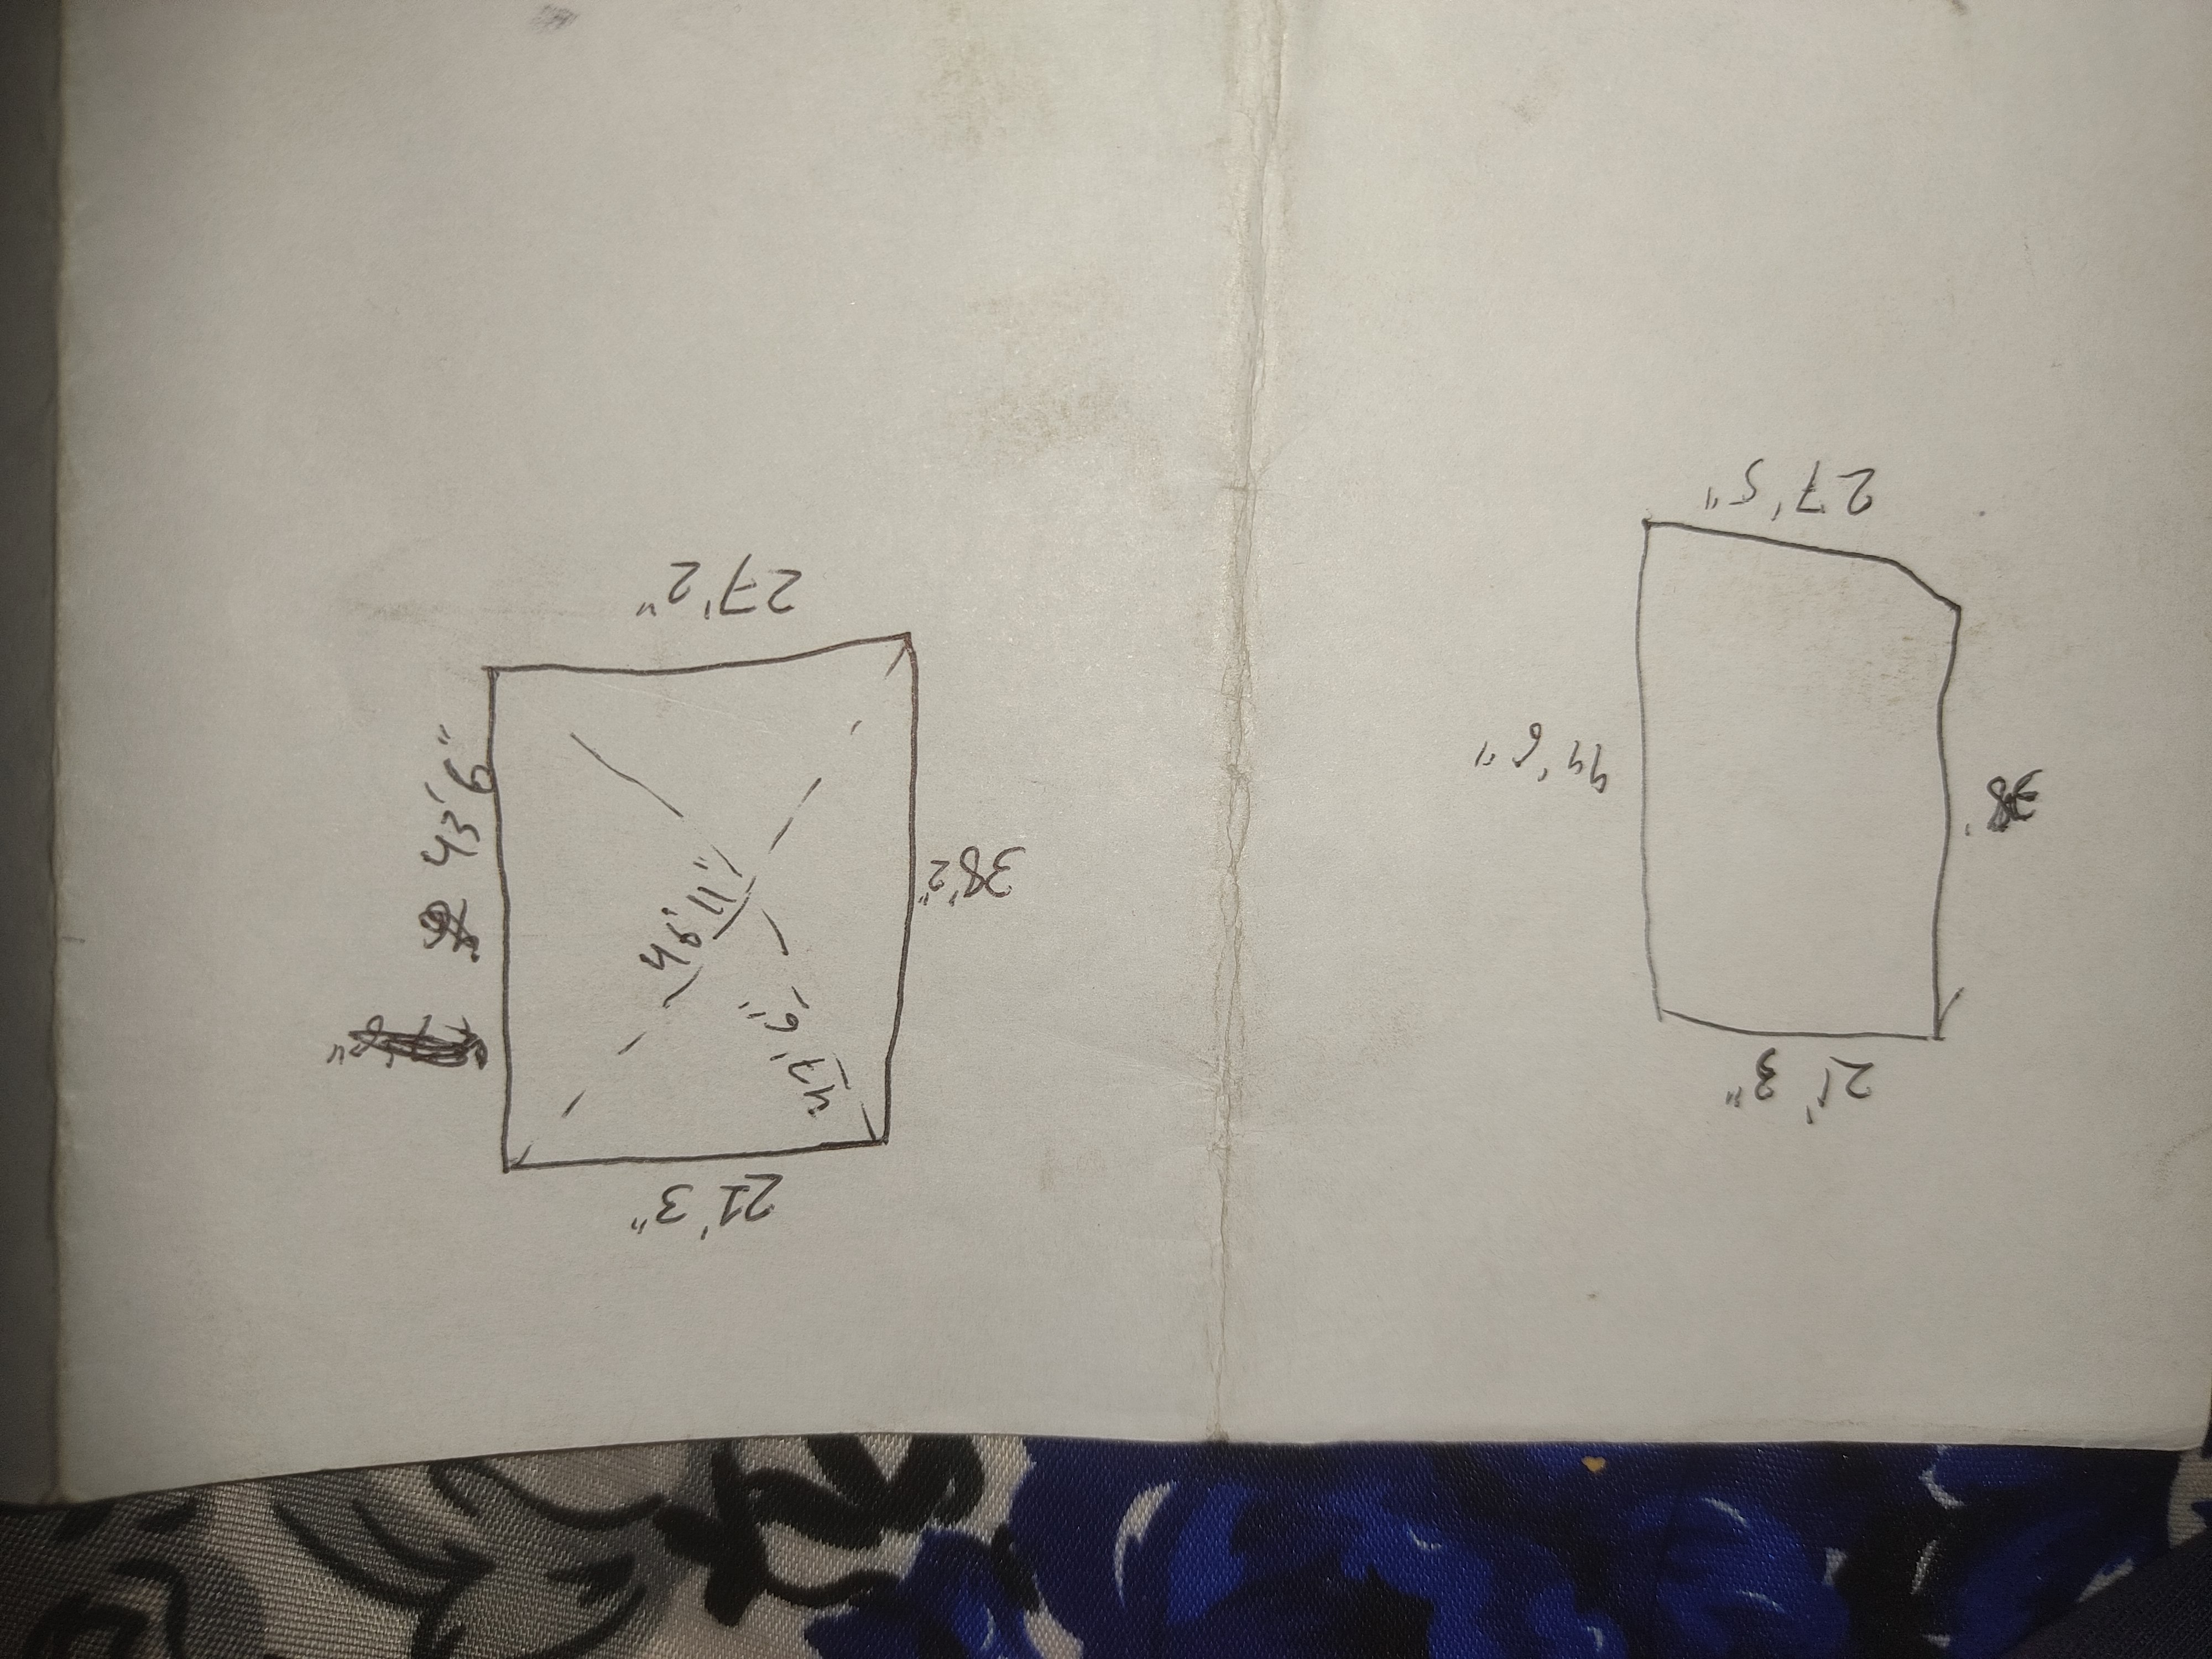 21' 3"
38'
44' 6"
27' 5"
21' 3"
47' 6"
46' 11"
38' 2"
43' 6"
27' 2"